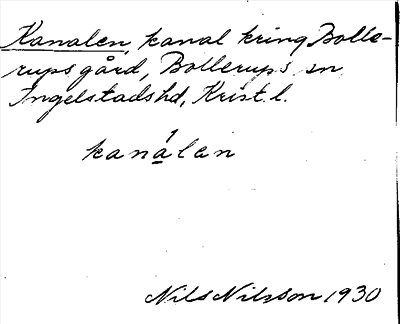 Kanalen, kanal kring Bolle-
rups gård, Bollerups sn
Ingelstads hd, Krist. l.
kanálen
Nils Nilsson 1930